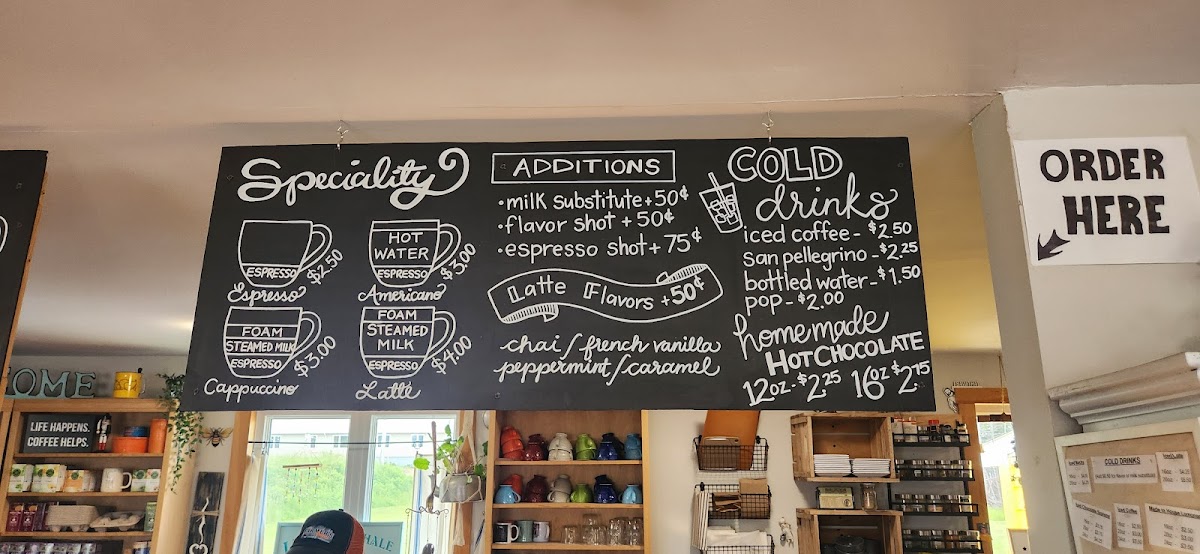 Speciality
ESPRESSO
Espresso $2.50
HOT
WATER
ESPRESSO
Americano $3.00
FOAM
STEAMED MILK
ESPRESSO
Cappuccino $3.00
FOAM
STEAMED
MILK
ESPRESSO
Latté $4.00
ADDITIONS
•milk substitute +50¢
•flavor shot +50¢
•espresso shot + 75¢
Latte Flavors +50¢
chai / french vanilla
peppermint/caramel
COLD
drinks
iced coffee - $2.50
san pellegrino - $2.25
bottled water - $1.50
pop - $2.00
homemade
HOT CHOCOLATE
12oz - $2.25 16oz $2.75
ORDER
HERE
HOME
LIFE HAPPENS.
COFFEE HELPS.
COLD DRINKS